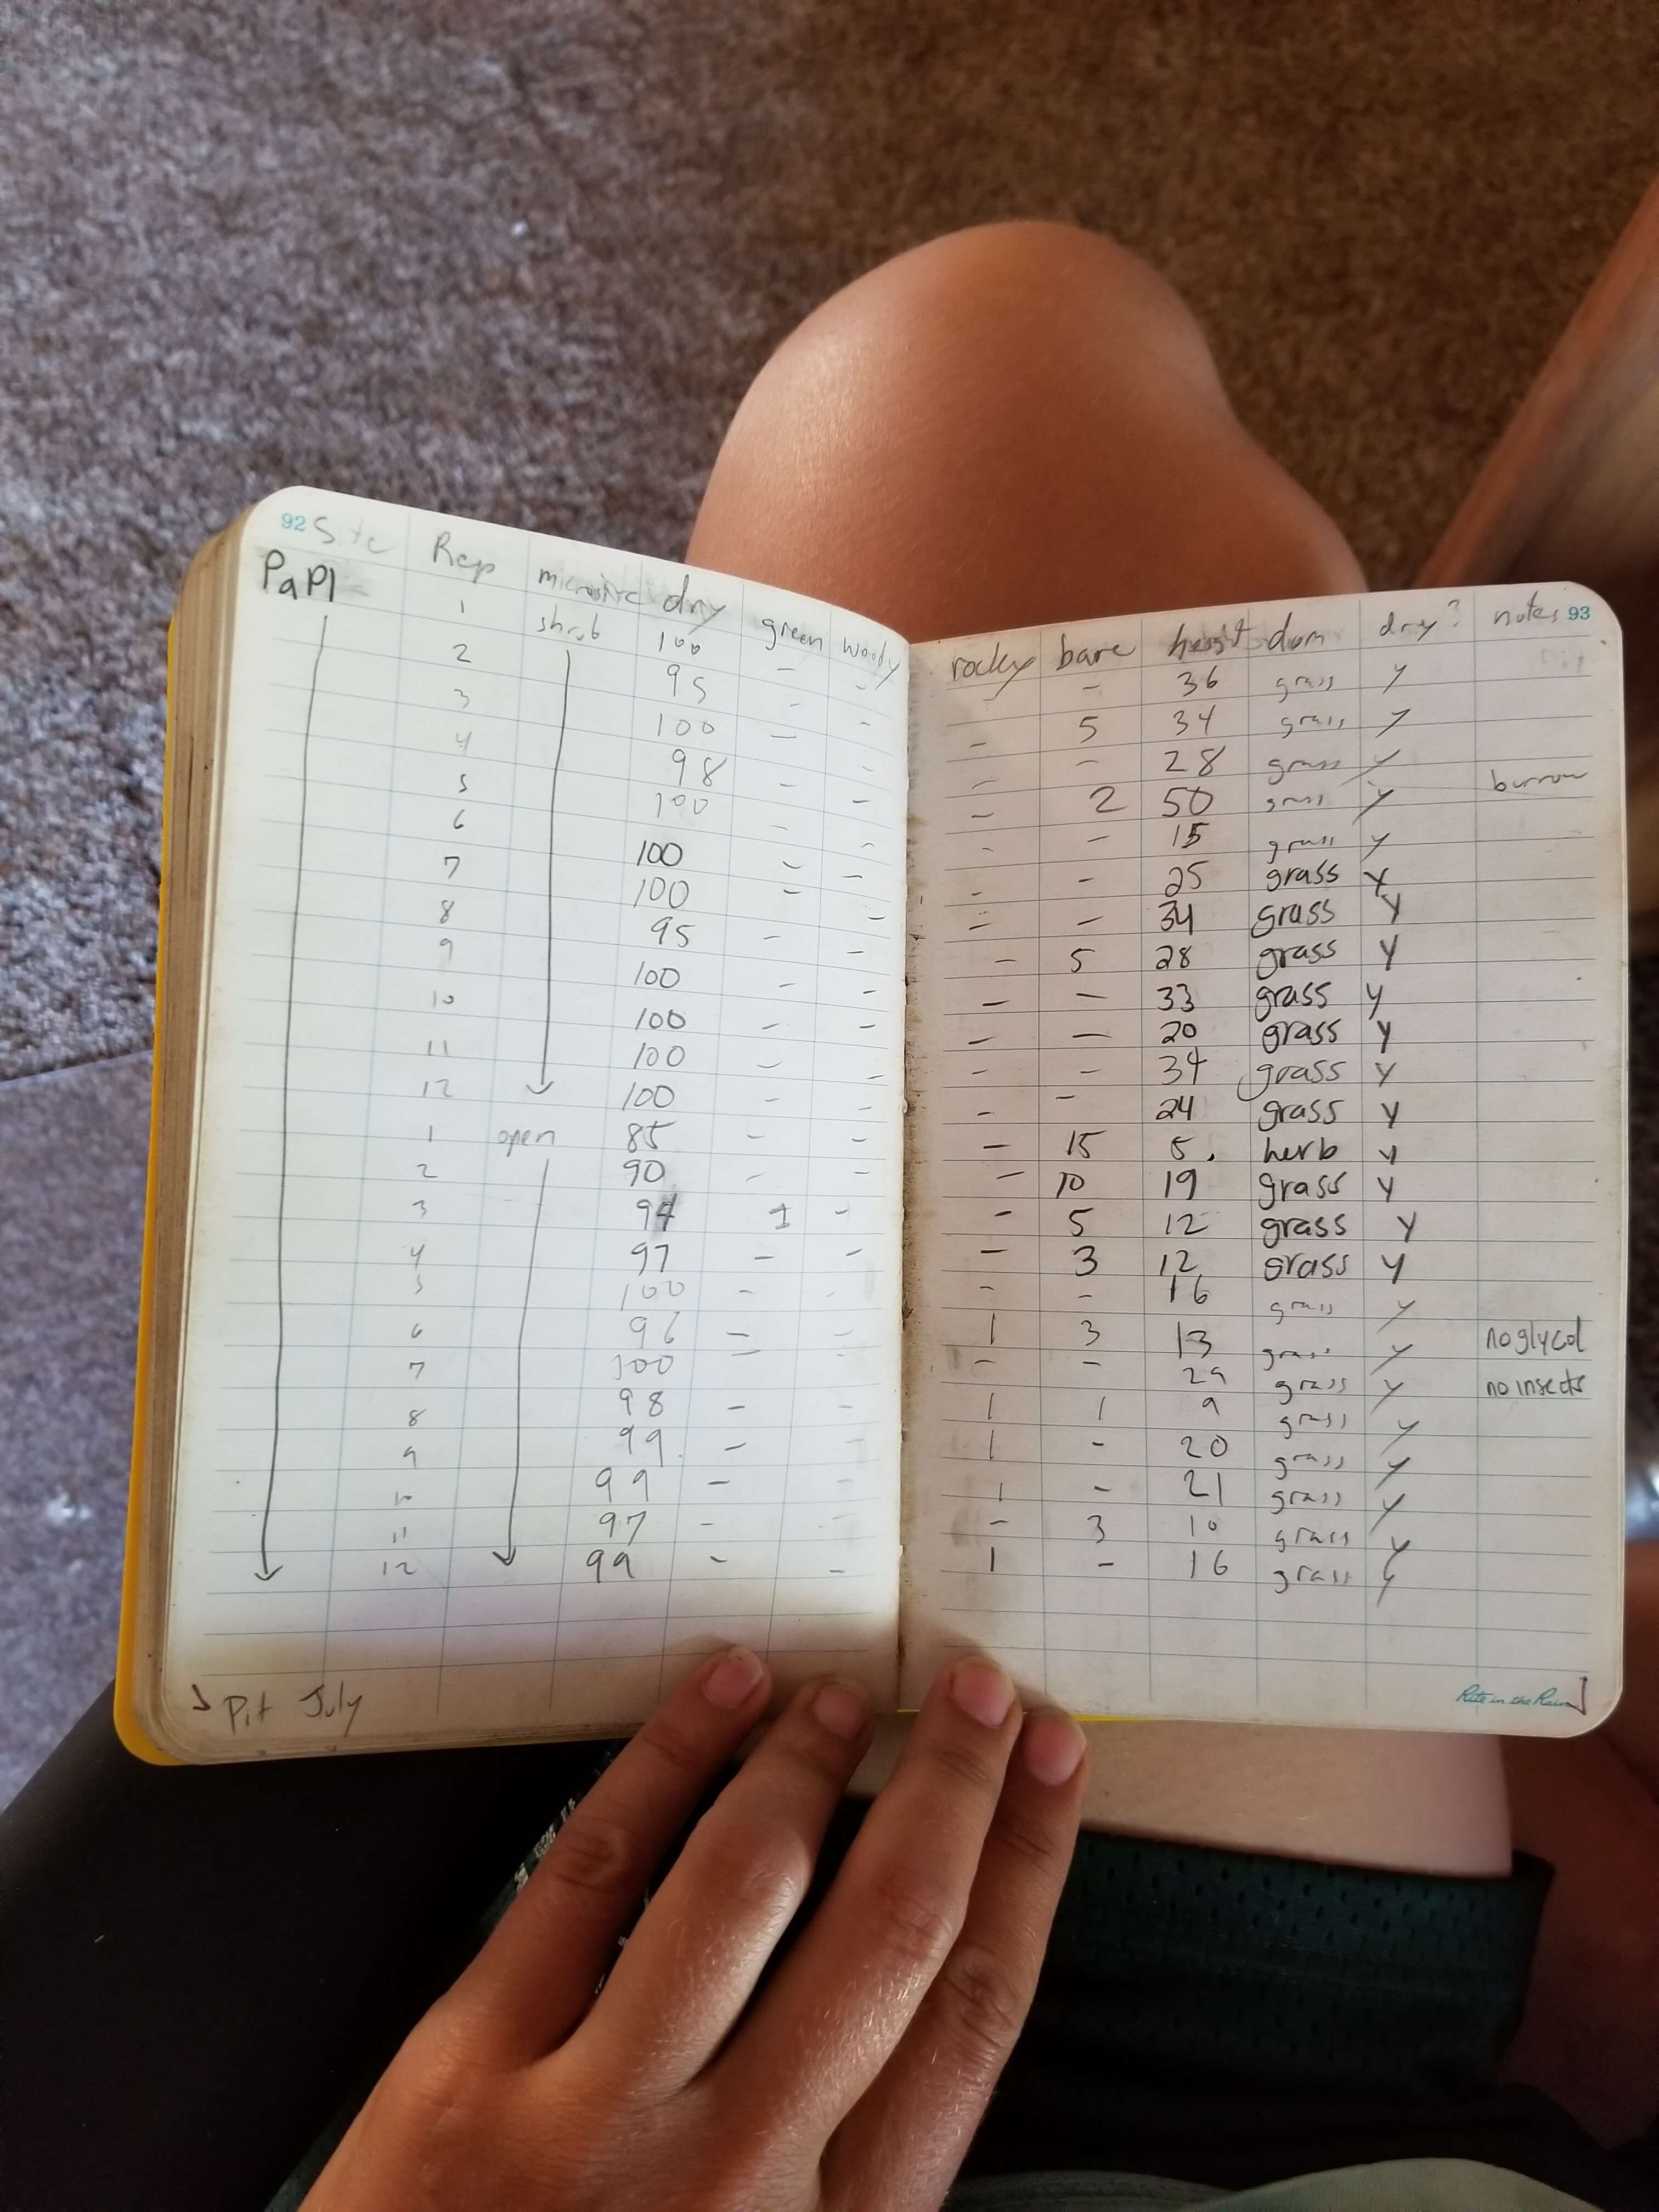 92 Site Rep microsite dry green woody
PaPl 1 shrub 100 - -
2 95 - -
3 100 - -
4 98 - -
5 100 - -
6 100 - -
7 100 - -
8 95 - -
9 100 - -
10 100 - -
11 100 - -
12 100 - -
1 open 85 - -
2 90 - -
3 94 1 -
4 97 - -
5 100 - -
6 96 - -
7 100 - -
8 98 - -
9 99 - -
10 99 - -
11 97 - -
12 99 - -
Pit July
rocky bare height dom dry? notes 93
- - 36 grass y
- 5 34 grass y
- - 28 grass y
- 2 50 grass y burrow
- - 15 grass y
- - 25 grass y
- - 34 grass y
- 5 28 grass y
- - 33 grass y
- - 20 grass y
- - 34 grass y
- - 24 grass y
- 15 5. herb y
- 10 19 grass y
- 5 12 grass y
- 3 12 grass y
- - 16 grass y
1 3 13 grass y no glycol
- - 29 grass y no insects
1 1 9 grass y
1 - 20 grass y
1 - 21 grass y
- 3 10 grass y
1 - 16 grass y
Rite in the Rain